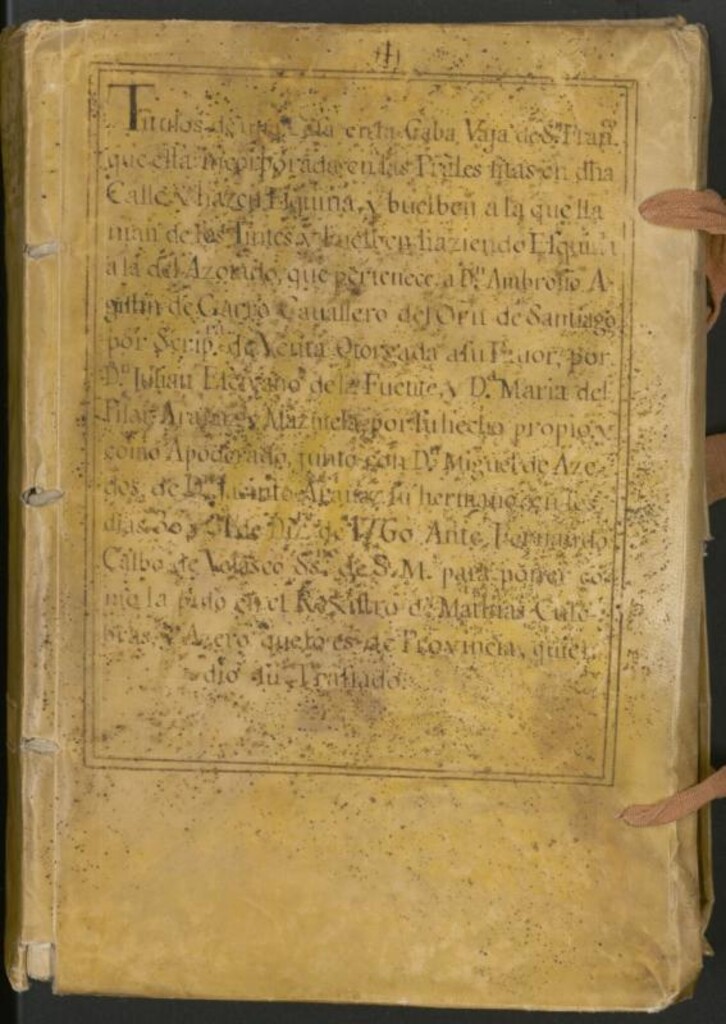 Titulos de una Casa en la Caba Vaja de Sn. Fran.co
que esta incorporada en las Prales sitas en dha
Calle y hazen Esquina, y buelben a la que lla
man de los Tintes y buelben haziendo Esquina
a la del Azotado, que pertenece, a Dn. Ambrosio A-
gustin de Garro Cauallero del Orn de Santiago
por Scrip.ra de Venta Otorgada a su Fauor, por
Dn. Julian de la Fuente, y Da. Maria del
Pilar y por su hecho propio, y
como Apoderado, junto con Dn. Miguel de Aze-
dos, de Dn. Jacinto su hermano, en los
dias 30 y 31 de Diz.e de 1760 Ante Fernando
Calbo de Velasco Ss.no de S. M. para poner co-
mo la puso en el Rexistro de Mathias Cule-
bras, y Azero que lo es de Provincia, quien
dio su Traslado.